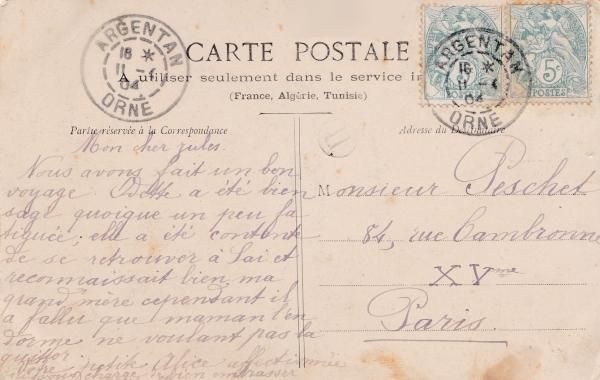 ARGENTAN
18 *
11 -4
04
ORNE
CARTE POSTALE
ARGENTAN
18 *
11 -4
04
ORNE
5c
POSTES
A utiliser seulement dans le service in
(France, Algérie, Tunisie)
Partie réservée à la Correspondance
Adresse du Destinataire
Mon cher Jules.
Nous avons fait un bon
voyage. Odette a été bien
sage quoique un peu fa
tiguée; elle a été contente
de se retrouver à Sai et
reconnaissait bien ma
grand'mère cependant il
a fallu que maman l'en
dorme ne voulant pas la
quitter.
Votre petite Alice affectionnée
embrasser
Monsieur Peschet
84, rue Cambronne
XVme
Paris.